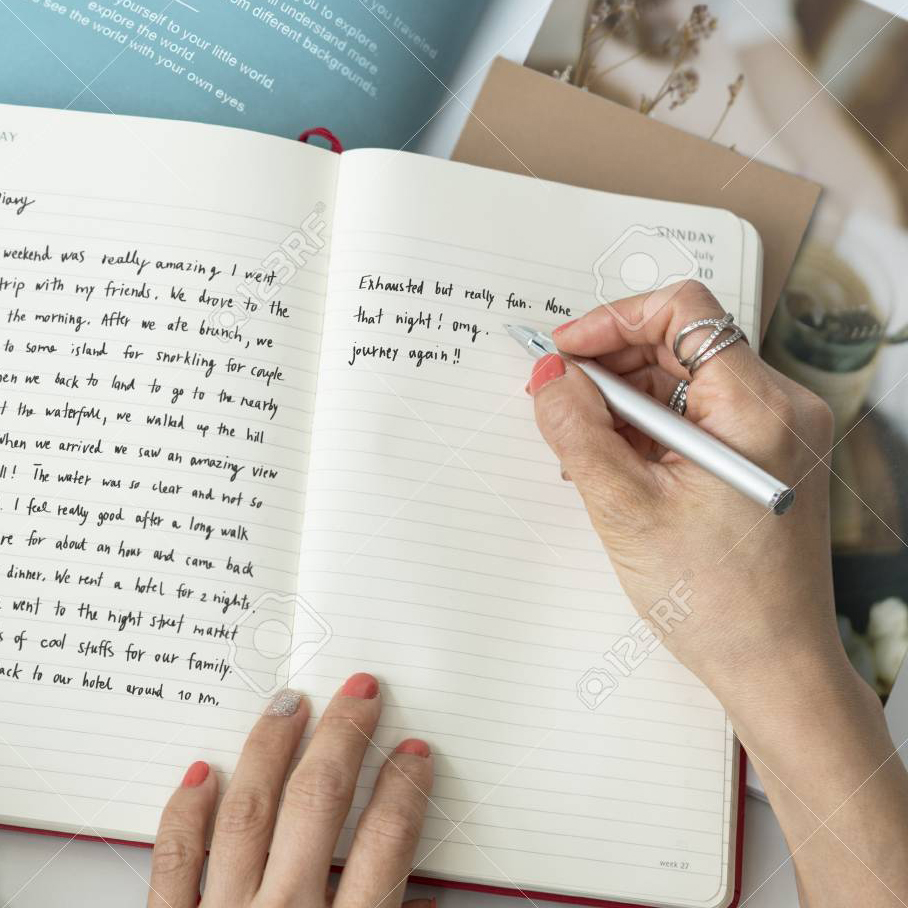 you to explore.
you traveled
will understand more
from different backgrounds.
yourself to your little world.
explore the world.
see the world with your own eyes.
AY
Diary
weekend was really amazing I went
trip with my friends. We drove to the
the morning. After we ate brunch, we
to some island for snorkling for couple
hen we back to land to go to the nearby
t the waterfall, we walked up the hill
when we arrived we saw an amazing view
ll! The water was so clear and not so
. I feel really good after a long walk
re for about an hour and came back
dinner. We rent a hotel for 2 nights.
went to the night street market
s of cool stuffs for our family.
ack to our hotel around 10 pm.
SUNDAY
July
10
Exhausted but really fun. None
that night! omg.
journey again!!
week 27
123RF
123RF
123RF